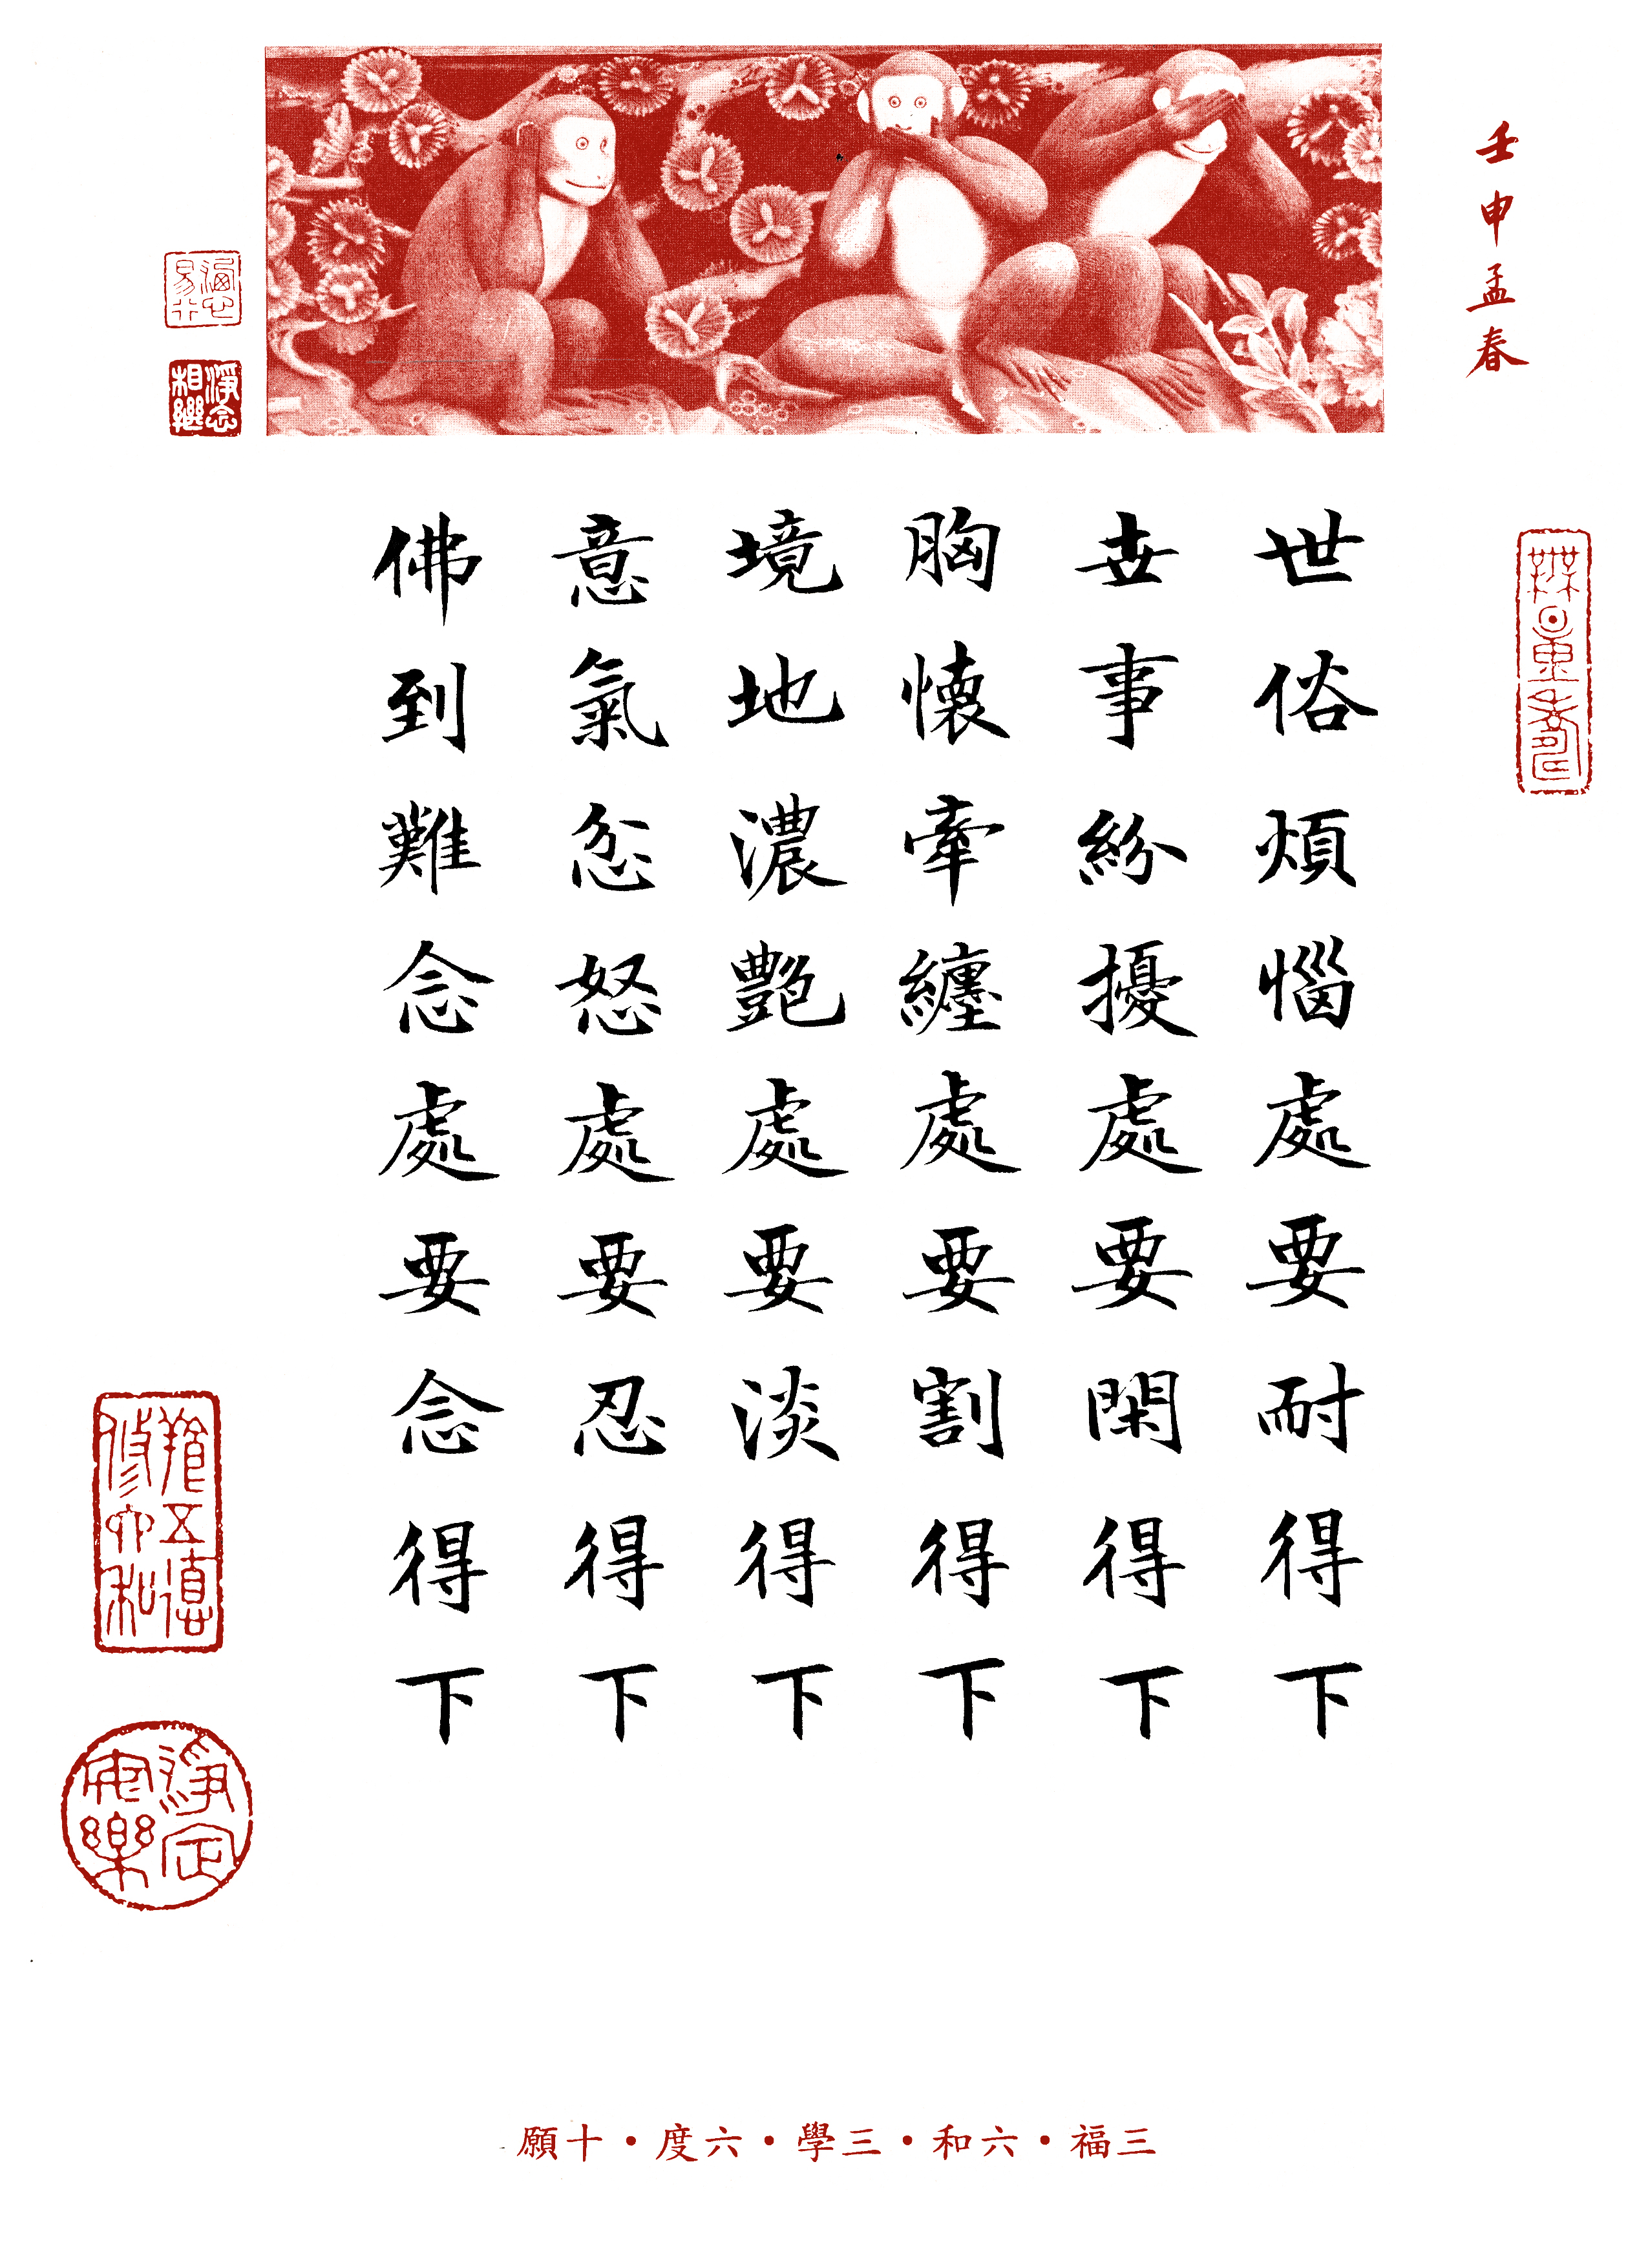 壬申孟春
世俗煩惱處要耐得下
世事紛擾處要閑得下
胸懷牽纏處要割得下
境地濃艷處要淡得下
意氣忿怒處要忍得下
佛到難念處要念得下
無量壽
淨念相繼
淨宗安樂
三福・六和・三學・六度・十願